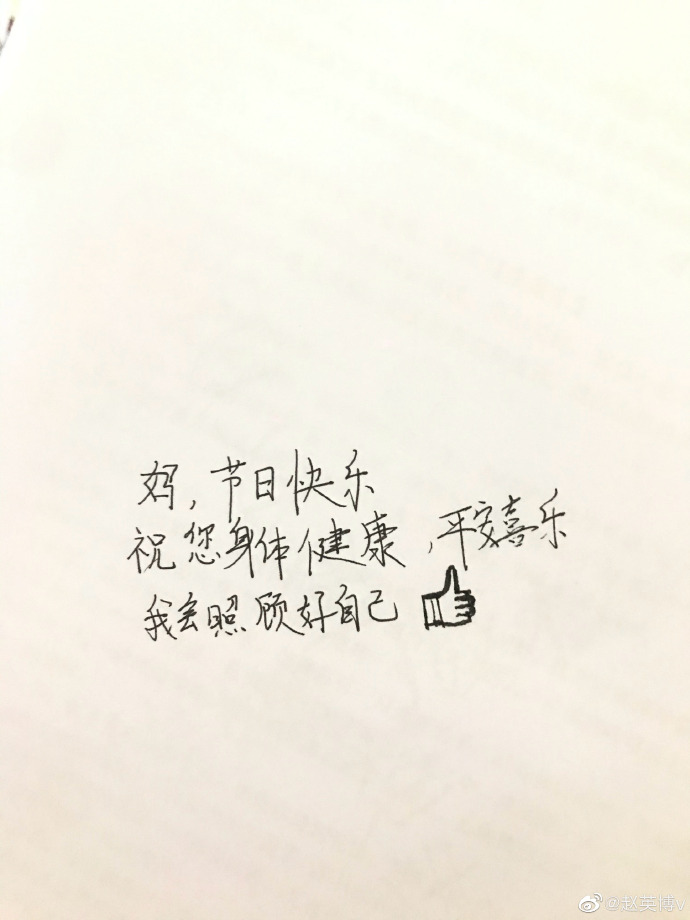 妈,节日快乐
祝您身体健康,平安喜乐
我会照顾好自己
@赵英博v